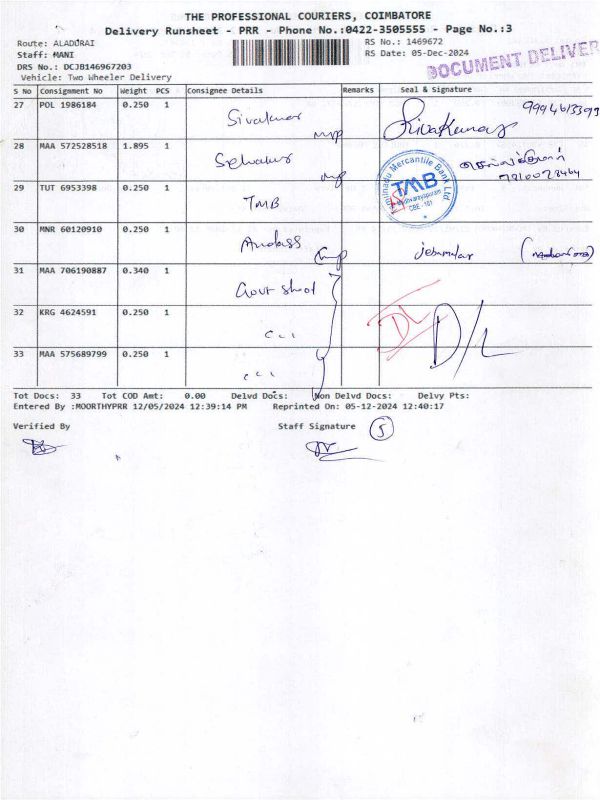 THE PROFESSIONAL COURIERS, COIMBATORE
Delivery Runsheet - PRR - Phone No.:0422-3505555 - Page No.:3
Route: ALADURAI
RS No.: 1469672
Staff: MANI
RS Date: 05-Dec-2024
DOCUMENT DELIVER
DRS No.: DCJB146967203
Vehicle: Two Wheeler Delivery
S No Consignment No Weight PCS Consignee Details Remarks Seal & Signature
27 POL 1986184 0.250 1 Sivakumar Sivakumar
28 MAA 572528518 1.895 1 Selvakumar
29 TUT 6953398 0.250 1 TMB
Mercantile Bank Ltd
TMB
CBE
30 MNR 60120910 0.250 1
31 MAA 706190887 0.340 1 Govt
32 KRG 4624591 0.250 1 D/L
33 MAA 575689799 0.250 1
Tot Docs: 33 Tot COD Amt: 0.00 Delvd Docs: Non Delvd Docs: Delvy Pts:
Entered By :MOORTHYPRR 12/05/2024 12:39:14 PM Reprinted On: 05-12-2024 12:40:17
Verified By Staff Signature 5